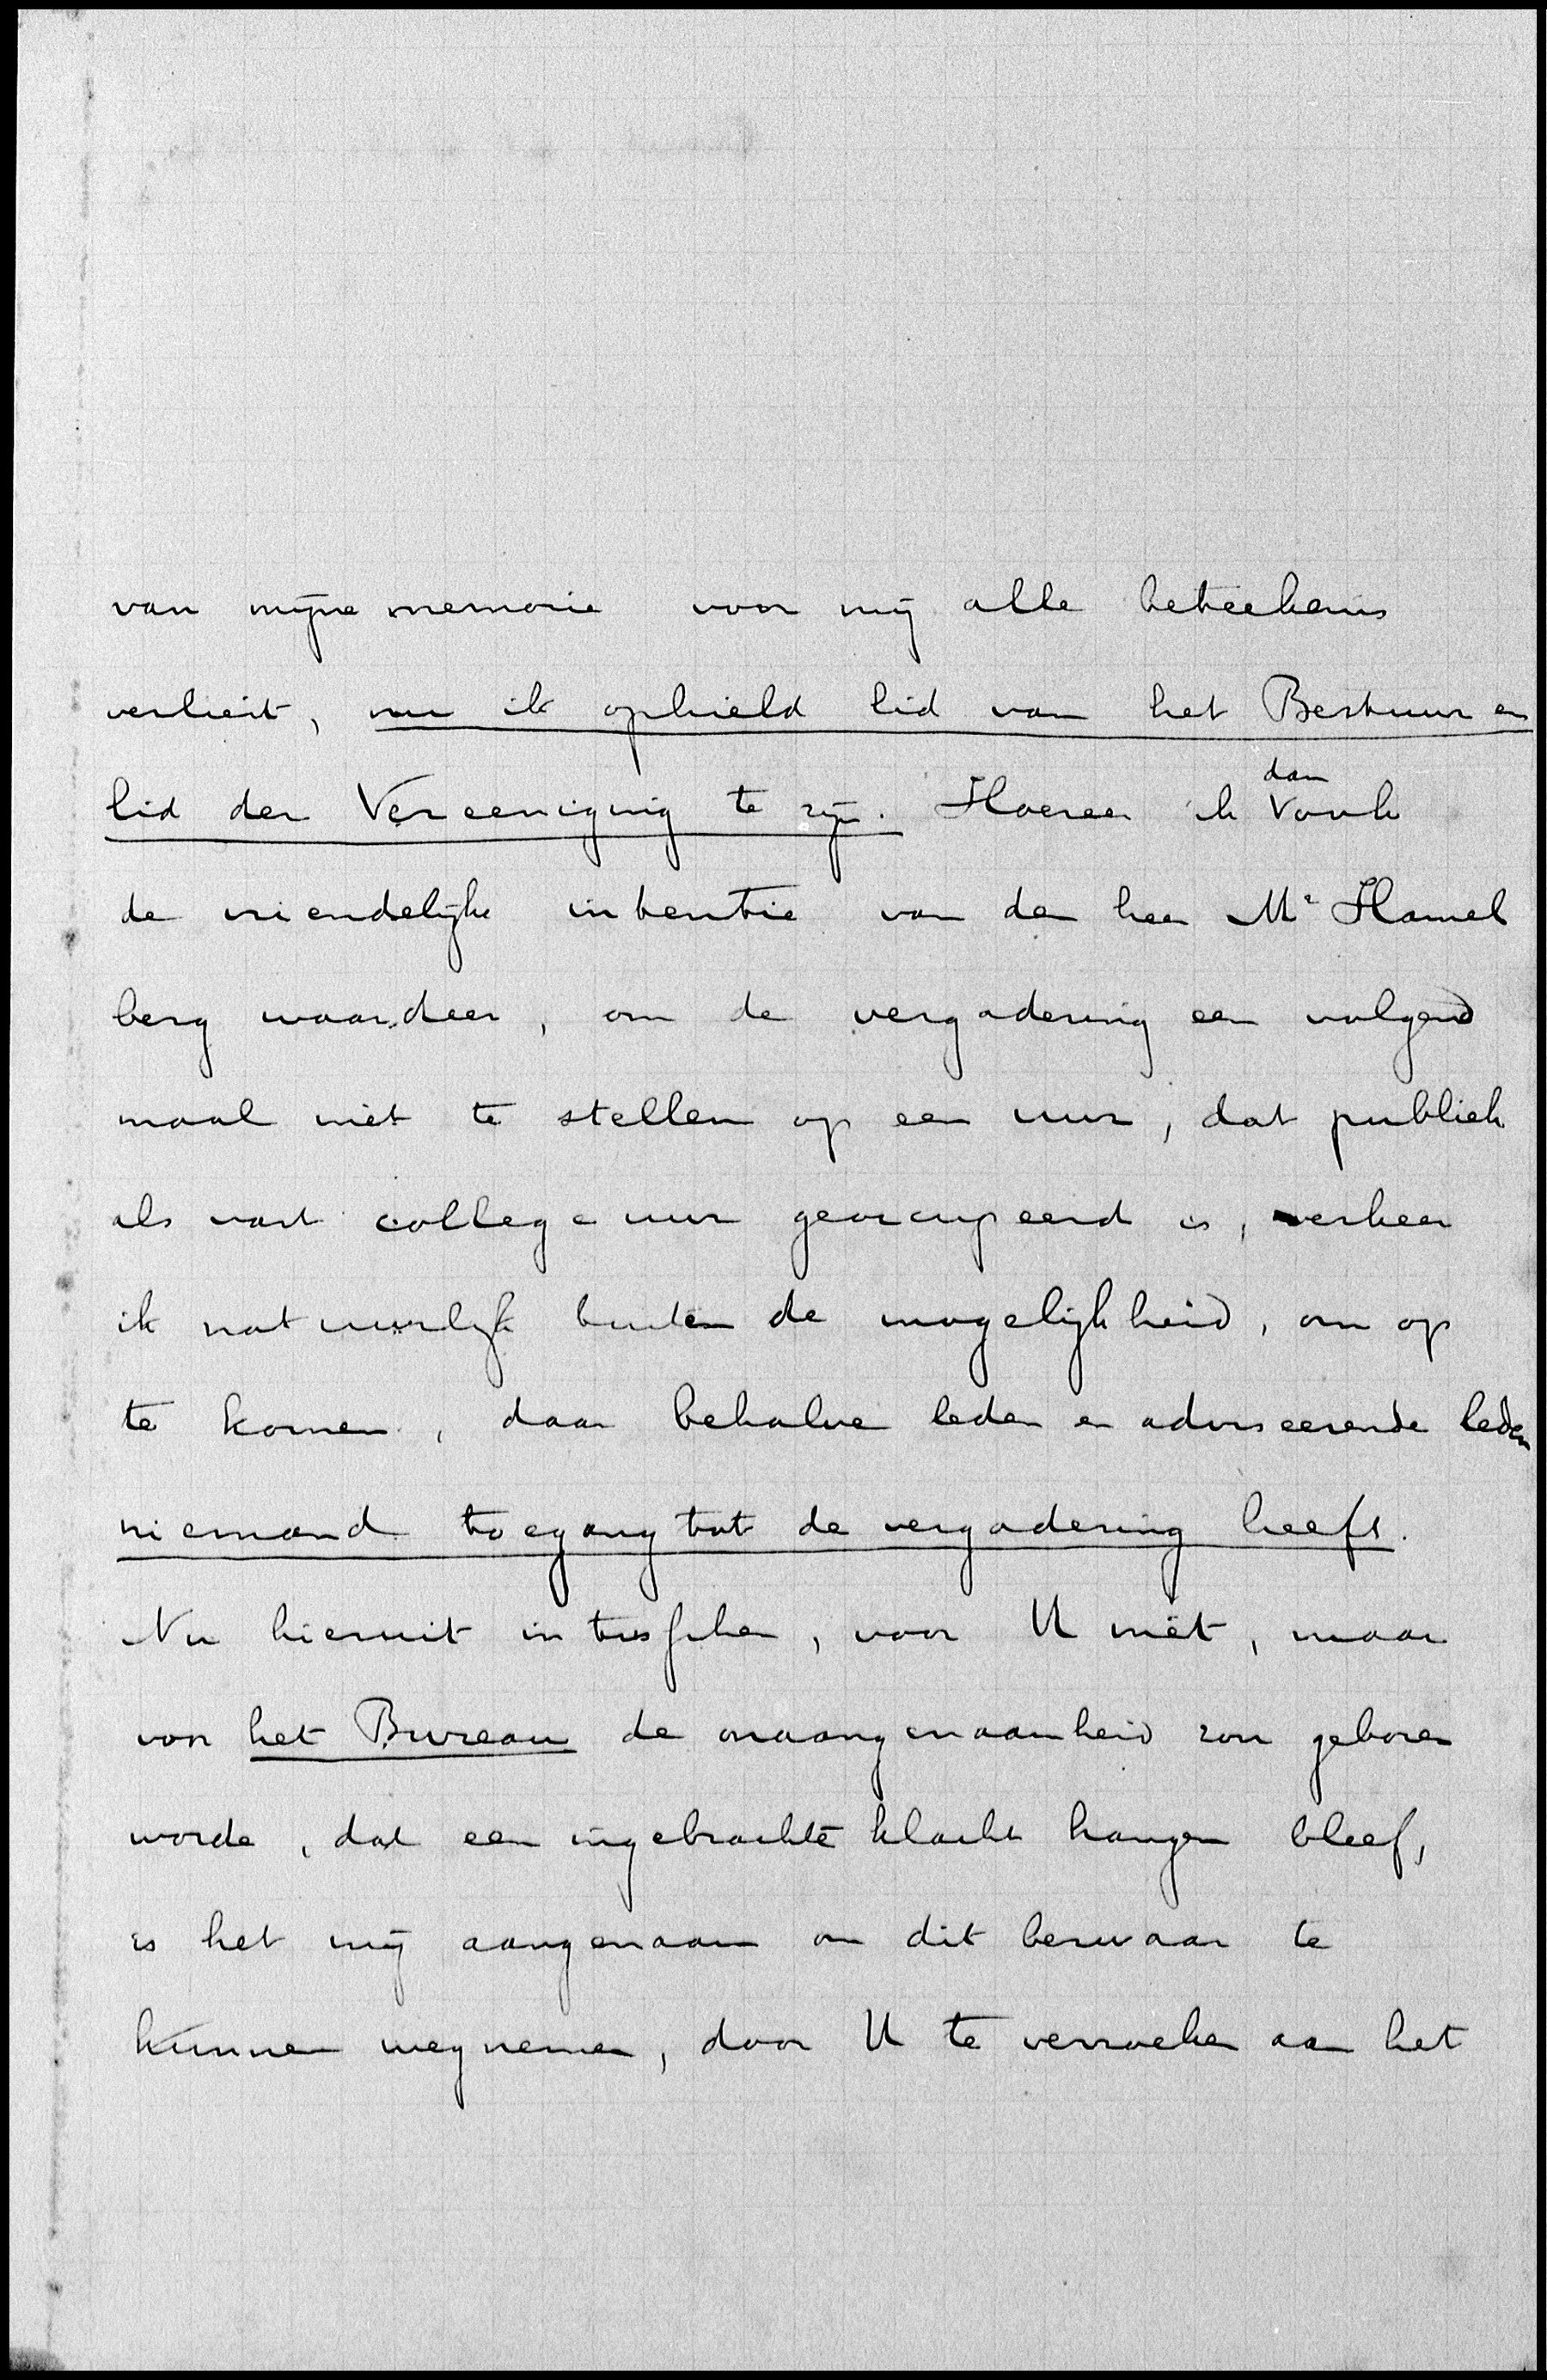 van mijne memorie voor mij alle beteekenis
verliest, nu ik ophield lid van het Bestuur en
lid der Vereeniging te zijn. Hoezeer ik dan ook
de vriendelijke intentie van den heer Mr Hamel
berg waardeer, om de vergadering een volgend
maal niet te stellen op een uur, dat publiek
als vast college uur geoccupeerd is, verkeer
ik natuurlijk buiten de mogelijkheid, om op
te komen, daar behalve leden en adviseerende leden
niemand toegang tot de vergadering heeft.
Nu hieruit intusschen, voor U niet, maar
voor het Bureau de onaangenaamheid zou geboren
worde, dat een ingebrachte klacht hangen bleef,
is het mij aangenaam om dit bezwaar te
kunnen wegnemen, door U te verzoeken aan het